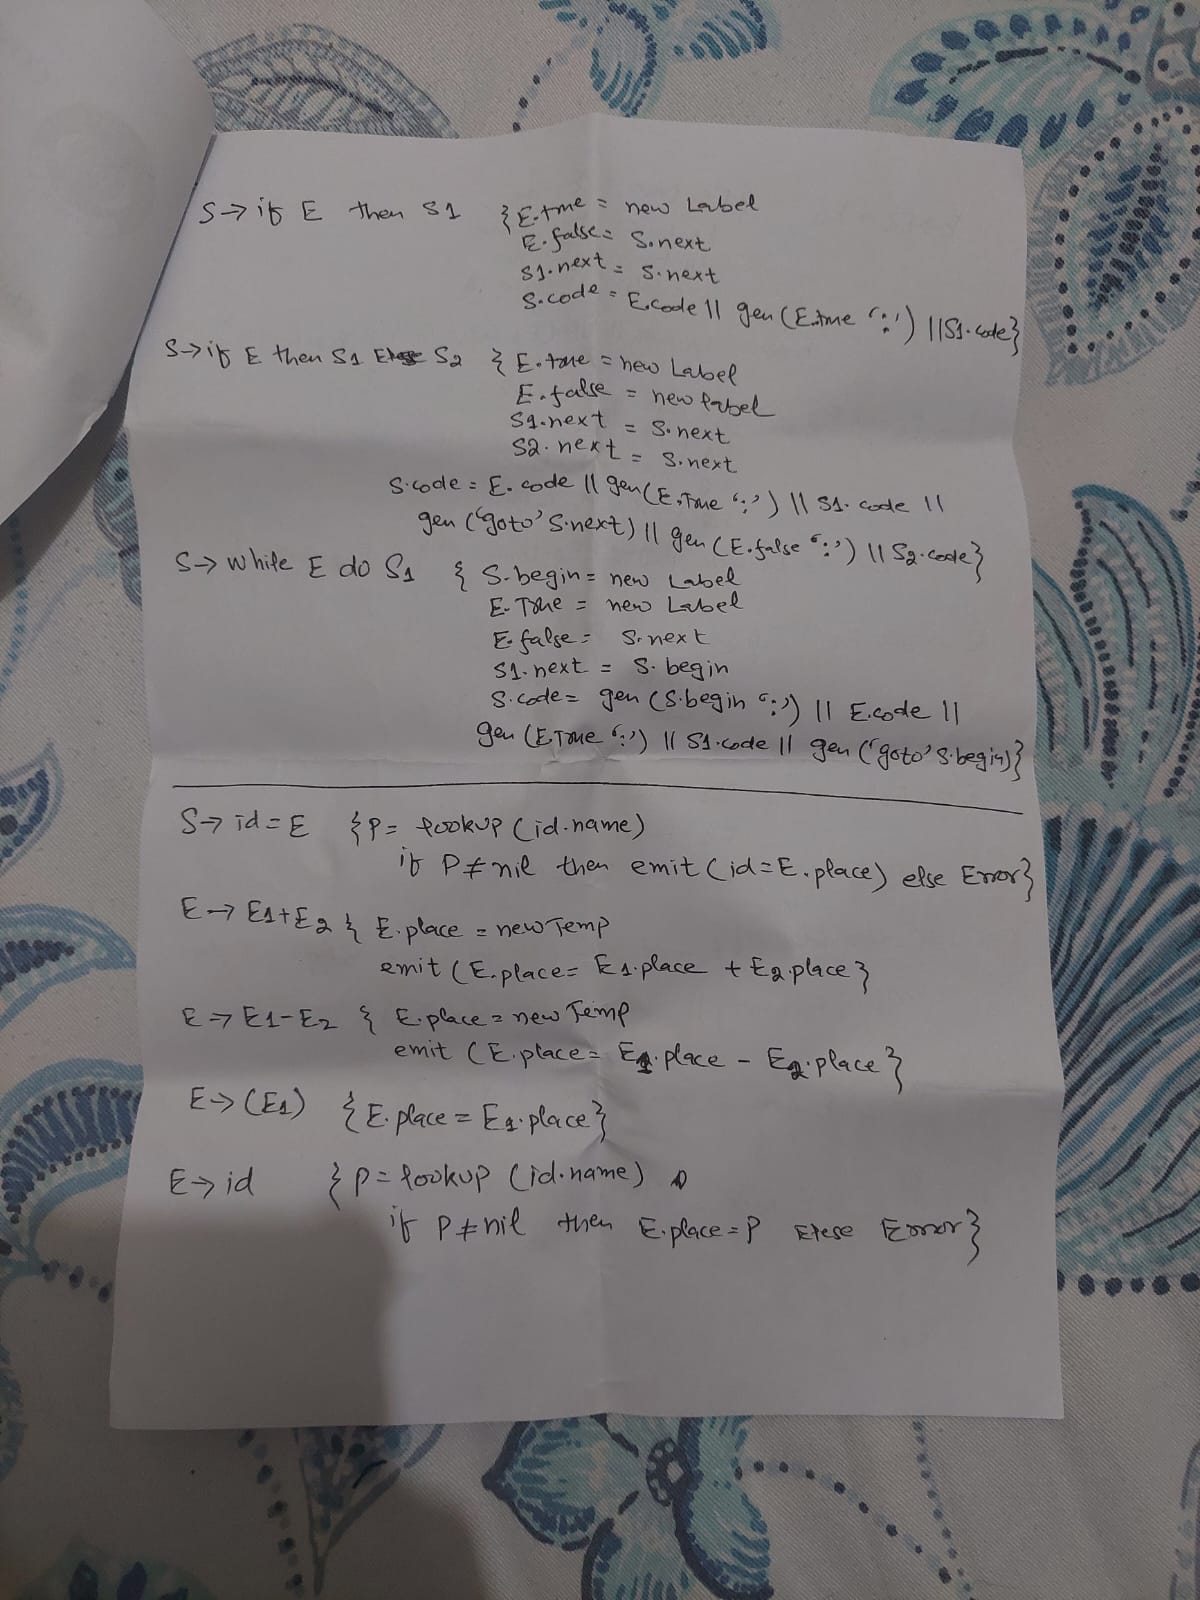 S→ if E then S1 { E.true = new Label
E.false = S.next
S1.next = S.next
S.code = E.code || gen (E.true ':') || S1.code}
S→ if E then S1 Else S2 { E.true = new Label
E.false = new label
S1.next = S.next
S2.next = S.next
S.code = E.code || gen (E.True ':') || S1.code ||
gen ('goto' S.next) || gen (E.false ':') || S2.code}
S→ while E do S1 { S.begin = new Label
E.True = new Label
E.false = S.next
S1.next = S.begin
S.code = gen (S.begin ':') || E.code ||
gen (E.True ':') || S1.code || gen ('goto' S.begin)}
S→ id = E { P = lookup (id.name)
if P ≠ nil then emit (id = E.place) else Error}
E → E1+E2 { E.place = newTemp
emit (E.place = E1.place + E2.place}
E → E1-E2 { E.place = new Temp
emit (E.place = E1.place - E2.place}
E → (E1) {E.place = E1.place}
E → id { P = lookup (id.name)
if P ≠ nil then E.place = P Elese Error}